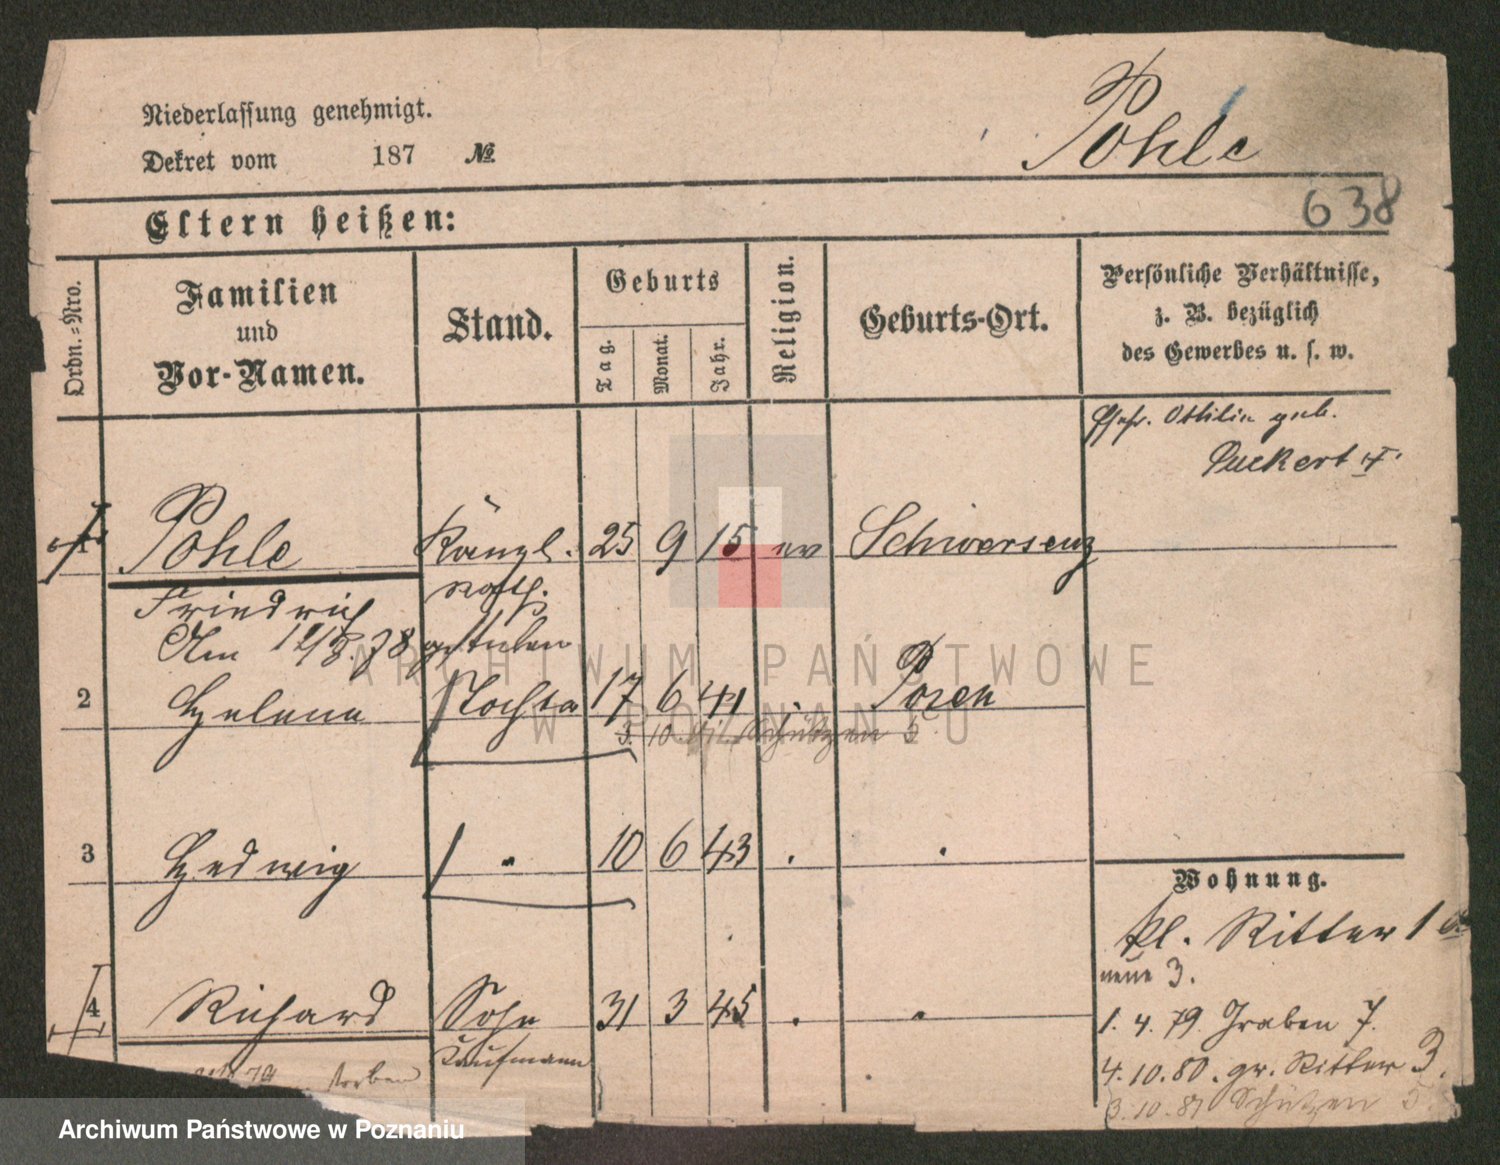 Niederlassung genehmigt.
Dekret vom 187 №
Pohle
638
Eltern heißen:
Ordn.-Nro.
Familien
und
Vor-Namen.
Stand.
Geburts
Tag.
Monat.
Jahr.
Religion.
Geburts-Ort.
Persönliche Verhältnisse,
z. B. bezüglich
des Gewerbes u. s. w.
Ehefr. Ottilie geb.
Puckert
1 Pohle Kanzl. 25 9 15 ev Schwersenz
Friedrich rath.
Am 78 gestorben
2 Helene Tochter 17 6 41 . Posen
3. 10. Schützen 5
3 Hedwig " 10 6 43 . .
4 Richard Sohn 31 3 45 . .
Kaufmann
79 storben
Wohnung.
kl. Ritter 1
neue 3.
1. 4. 79. Graben 7.
4. 10. 80. gr. Ritter 3.
3. 10. 81 Schützen 5.
ARCHIWUM PAŃSTWOWE
W POZNANIU
Archiwum Państwowe w Poznaniu